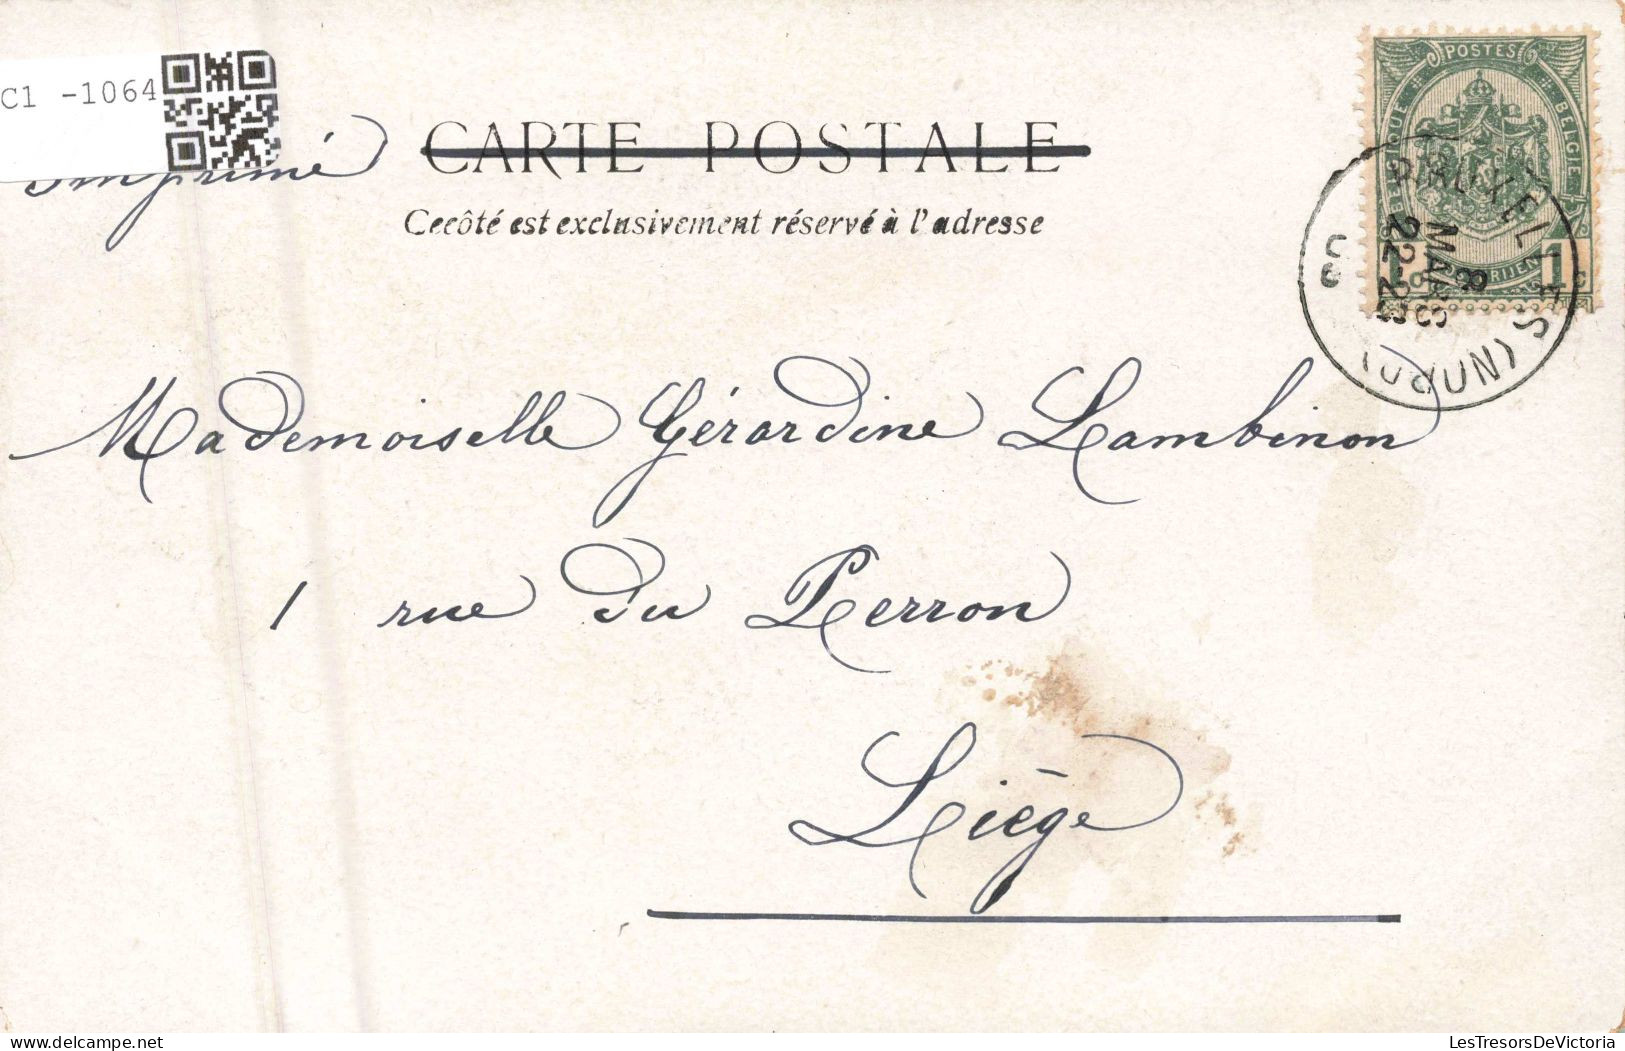 C1 -1064
Imprimé
CARTE POSTALE
Ce côté est exclusivement réservé à l'adresse
POSTES
BELGIQUE BELGIË
1 1
BRUXELLES (NORD)
8 MARS
22-23
03
Mademoiselle Gérardine Lambinon
1 rue du Perron
Liège
LesTresorsDeVictoria